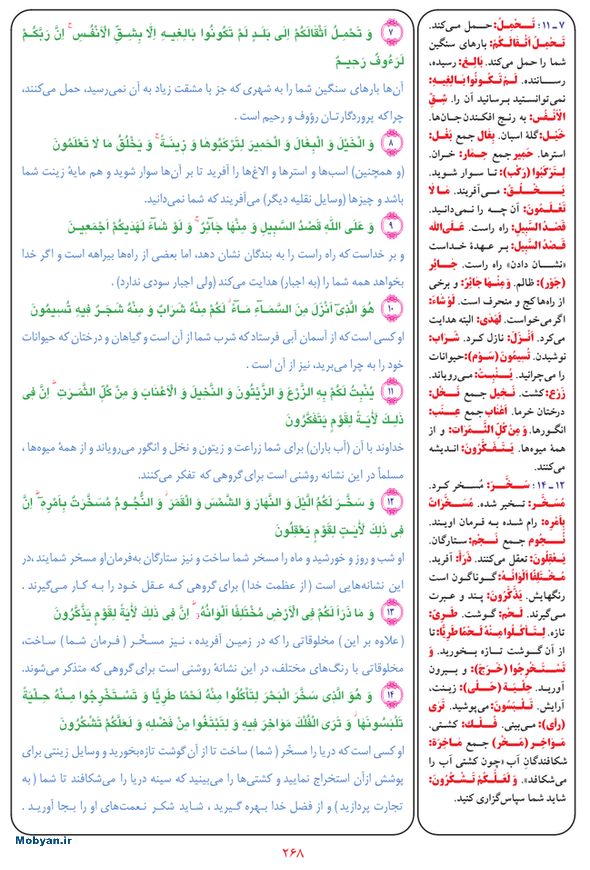 ۷ـ۱۱: تَحْمِلُ: حمل می‌کند.
تَحْمِلُ اَثْقالَكُمْ: بارهای سنگین
شما را حمل می‌کند. بالِغ: رسیده،
رساننده. لَمْ تَكُونُوا بالِغيهِ:
نمی‌توانستید برسانید آن را. شِقِّ
الْاَنْفُس: به رنج افکندن جان‌ها.
خَيْل: گلهٔ اسبان. بِغال جمع بَغْل:
استرها. حَمير جمع حِمار: خران.
لِتَرْكَبُوا (رَكْب): تا سوار شوید.
يَخْلُقُ: می‌آفریند. ما لا
تَعْلَمُونَ: آن چه را نمی‌دانید.
قَصْدُ السَّبيل: راه راست. عَلَى‌الله
قَصْدُ السَّبيل: بر عهدهٔ خداست
«نشان دادن» راه راست. جائِر
(جَوْر): ظالم. وَ مِنْها جائِرٌ: و برخی
از راه‌ها کج و منحرف است. لَوْ شاءَ:
اگر می‌خواست. لَهَدى: البته هدایت
می‌کرد. اَنْزَلَ: نازل کرد. شَراب:
نوشیدن. تُسيمُونَ (سَوْم): حیوانات
را می‌چرانید. يُنْبِتُ: می‌رویاند.
زَرْع: کشت. نَخيل جمع نَخْل:
درختان خرما. اَعْناب جمع عِنَب:
انگورها. وَ مِنْ كُلِّ الثَّمَرات: و از
همهٔ میوه‌ها. يَتَفَكَّرُونَ: اندیشه
می‌کنند.
۱۲ـ۱۴: سَخَّرَ: مُسخر کرد.
مُسَخَّر: تسخیر شده. مُسَخَّراتٌ
بِاَمْرِه: رام شده به فرمان اویند.
نُجُوم جمع نَجْم: ستارگان.
يَعْقِلُونَ: تعقل می‌کنند. ذَرَأَ: آفرید.
مُخْتَلِفًا اَلْوانُهُ: گوناگون است
رنگهایش. يَذَّكَّرُونَ: پند و عبرت
می‌گیرند. لَحْم: گوشت. طَرِىّ:
تازه. لِتَأْكُلُوا مِنْهُ لَحْمًا طَرِيًّا: تا
از آن گوشت تازه بخورید. وَ
تَسْتَخْرِجُوا (خَرَجَ): و بیرون
آورید. حِلْيَة (حَلْى): زینت،
آرایش. تَلْبَسُونَ: می‌پوشید. تَرَى
(رأى): می‌بینی. فُلْك: کشتی.
مَواخِر (مَخْر) جمع ماخِرَة:
شکافندگانِ آب «چون کشتی آب را
می‌شکافد». وَ لَعَلَّكُمْ تَشْكُرُونَ:
شاید شما سپاس‌گزاری کنید.
۷ وَ تَحْمِلُ اَثْقالَكُمْ اِلٰى بَلَدٍ لَمْ تَكُونُوا بالِغيهِ اِلّا بِشِقِّ الْاَنْفُسِ ۚ اِنَّ رَبَّكُمْ
لَرَءُوفٌ رَحيمٌ
آن‌ها بارهای سنگین شما را به شهری که جز با مشقت زیاد به آن نمی‌رسید، حمل می‌کنند،
چرا که پروردگارتان رؤوف و رحیم است .
۸ وَ الْخَيْلَ وَ الْبِغالَ وَ الْحَميرَ لِتَرْكَبُوها وَ زينَةً ۚ وَ يَخْلُقُ ما لا تَعْلَمُونَ
(و همچنین) اسب‌ها و استرها و الاغ‌ها را آفرید تا بر آن‌ها سوار شوید و هم مایهٔ زینت شما
باشد و چیزها (وسایل نقلیه دیگر) می‌آفریند که شما نمی‌دانید.
۹ وَ عَلَى اللهِ قَصْدُ السَّبيلِ وَ مِنْها جآئِرٌ ۚ وَ لَوْ شآءَ لَهَديكُمْ اَجْمَعينَ
و بر خداست که راه راست را به بندگان نشان دهد، اما بعضی از راه‌ها بیراهه است و اگر خدا
بخواهد همه شما را (به اجبار) هدایت می‌کند (ولی اجبار سودی ندارد) .
۱۰ هُوَ الَّذىٓ اَنْزَلَ مِنَ السَّمآءِ مآءً ۖ لَكُمْ مِنْهُ شَرابٌ وَ مِنْهُ شَجَرٌ فيهِ تُسيمُونَ
او کسی است که از آسمان آبی فرستاد که شرب شما از آن است و گیاهان و درختان که حیوانات
خود را به چرا می‌برید، نیز از آن است .
۱۱ يُنْبِتُ لَكُمْ بِهِ الزَّرْعَ وَ الزَّيْتُونَ وَ النَّخيلَ وَ الْاَعْنابَ وَ مِنْ كُلِّ الثَّمَرٰتِ ۗ اِنَّ فى
ذٰلِكَ لَأيَةً لِقَوْمٍ يَتَفَكَّرُونَ
خداوند با آن (آب باران) برای شما زراعت و زیتون و نخل و انگور می‌رویاند و از همهٔ میوه‌ها ،
مسلماً در این نشانه روشنی است برای گروهی که تفکر می‌کنند.
۱۲ وَ سَخَّرَ لَكُمُ الَّيْلَ وَ النَّهارَ وَ الشَّمْسَ وَ الْقَمَرَ ۖ وَ النُّجُومُ مُسَخَّرٰتٌ بِاَمْرِهٖ ۗ اِنَّ
فى ذٰلِكَ لَأيٰتٍ لِقَوْمٍ يَعْقِلُونَ
او شب و روز و خورشید و ماه را مسخر شما ساخت و نیز ستارگان به‌فرمان‌او مسخر شمایند ،در
این نشانه‌هایی است ( از عظمت خدا ) برای گروهی که عقل خود را به کار می‌گیرند .
۱۳ وَ ما ذَرَاَ لَكُمْ فِى الْاَرْضِ مُخْتَلِفًا اَلْوانُهُ ۗ اِنَّ فى ذٰلِكَ لَأيَةً لِقَوْمٍ يَذَّكَّرُونَ
(علاوه بر این ) مخلوقاتی را که در زمین آفریده ، نیز مسخّر ( فرمان شما ) ساخت،
مخلوقاتی با رنگ‌های مختلف، در این نشانهٔ روشنی است برای گروهی که متذکر می‌شوند.
۱۴ وَ هُوَ الَّذى سَخَّرَ الْبَحْرَ لِتَأْكُلُوا مِنْهُ لَحْمًا طَرِيًّا وَ تَسْتَخْرِجُوا مِنْهُ حِلْيَةً
تَلْبَسُونَها ۚ وَ تَرَى الْفُلْكَ مَواخِرَ فيهِ وَ لِتَبْتَغُوا مِنْ فَضْلِهٖ وَ لَعَلَّكُمْ تَشْكُرُونَ
او کسی است که دریا را مسخّر ( شما ) ساخت تا از آن گوشت تازه‌بخورید و وسایل زینتی برای
پوشش ازآن استخراج نمایید و کشتی‌ها را می‌بینید که سینه دریا را می‌شکافند تا شما ( به
تجارت پردازید ) و از فضل خدا بهره گیرید ، شاید شکر نعمت‌های او را بجا آورید .
Mobyan.ir
۲۶۸